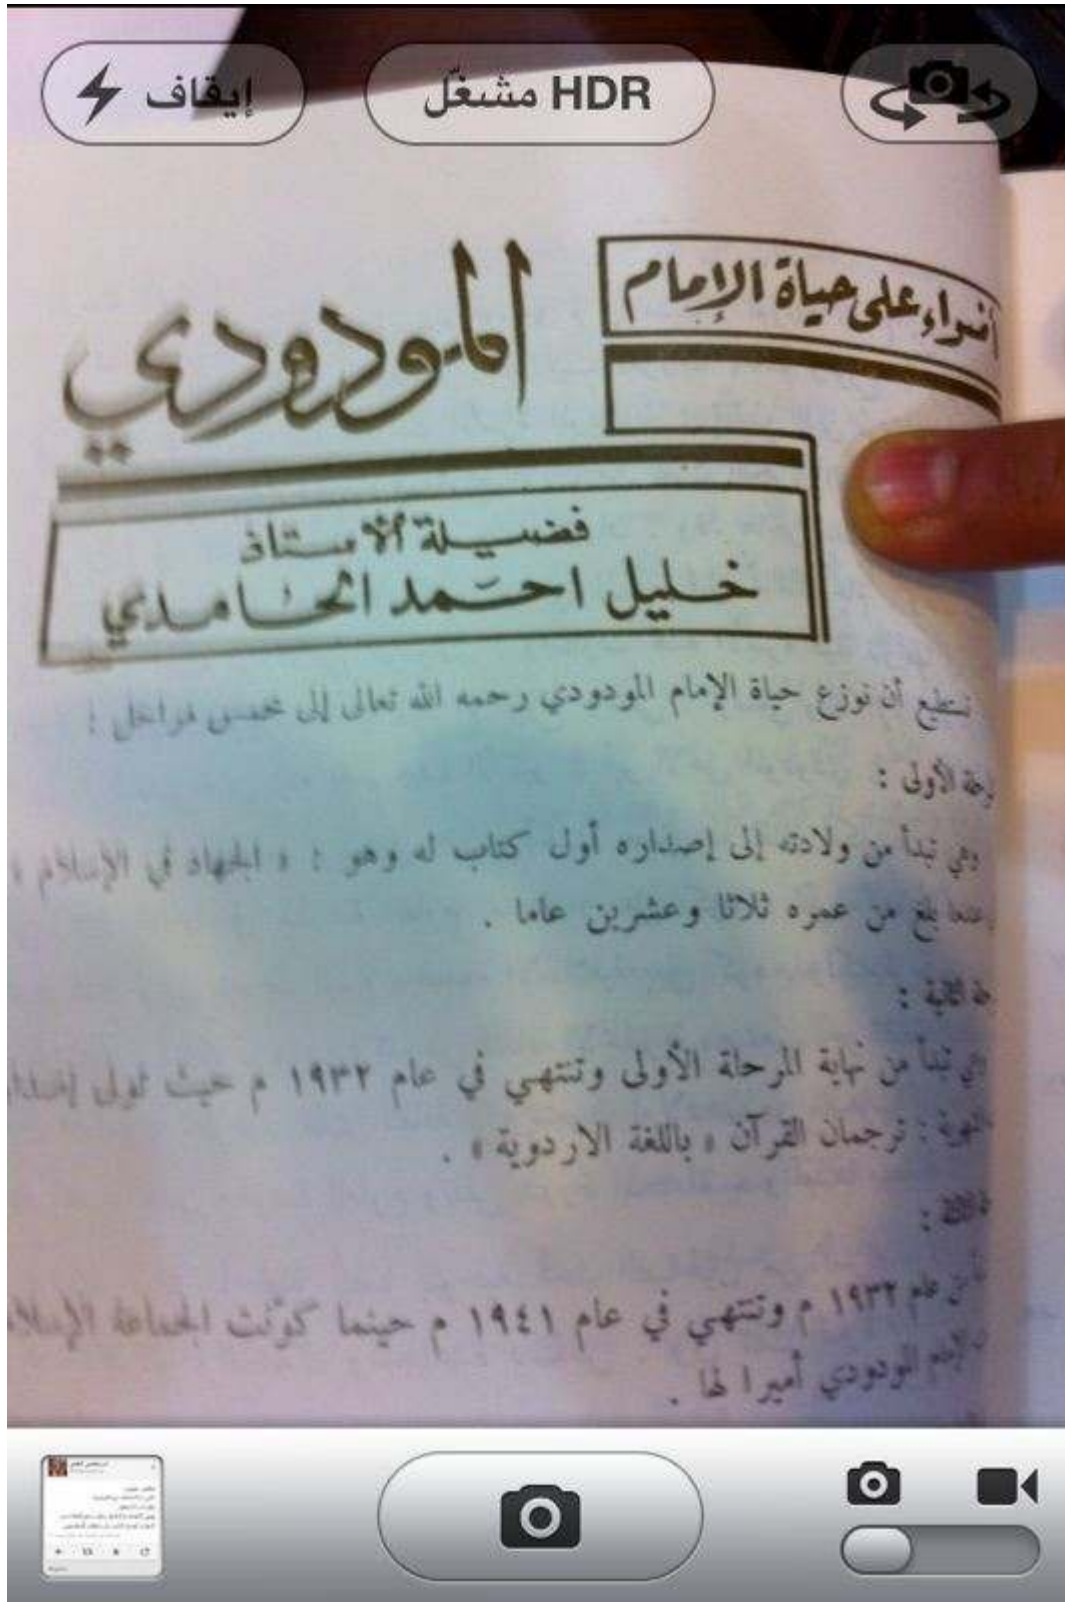 إيقاف
HDR مشغّل
أضواء على حياة الإمام
المودودي
فضيلة الأستاذ
خليل احمد الحامدي
نستطيع أن نوزع حياة الإمام المودودي رحمه الله تعالى إلى خمس مراحل :
الأولى :
وهي تبدأ من ولادته إلى إصداره أول كتاب له وهو : « الجهاد في الإسلام »
عندما بلغ من عمره ثلاثا وعشرين عاما .
الثانية :
وهي تبدأ من نهاية المرحلة الأولى وتنتهي في عام ١٩٣٢ م حيث تولى
ترجمان القرآن « باللغة الاردوية » .
من عام ١٩٣٢ م وتنتهي في عام ١٩٤١ م حينما كوّنت الجماعة
الإمام المودودي أميرا لها .